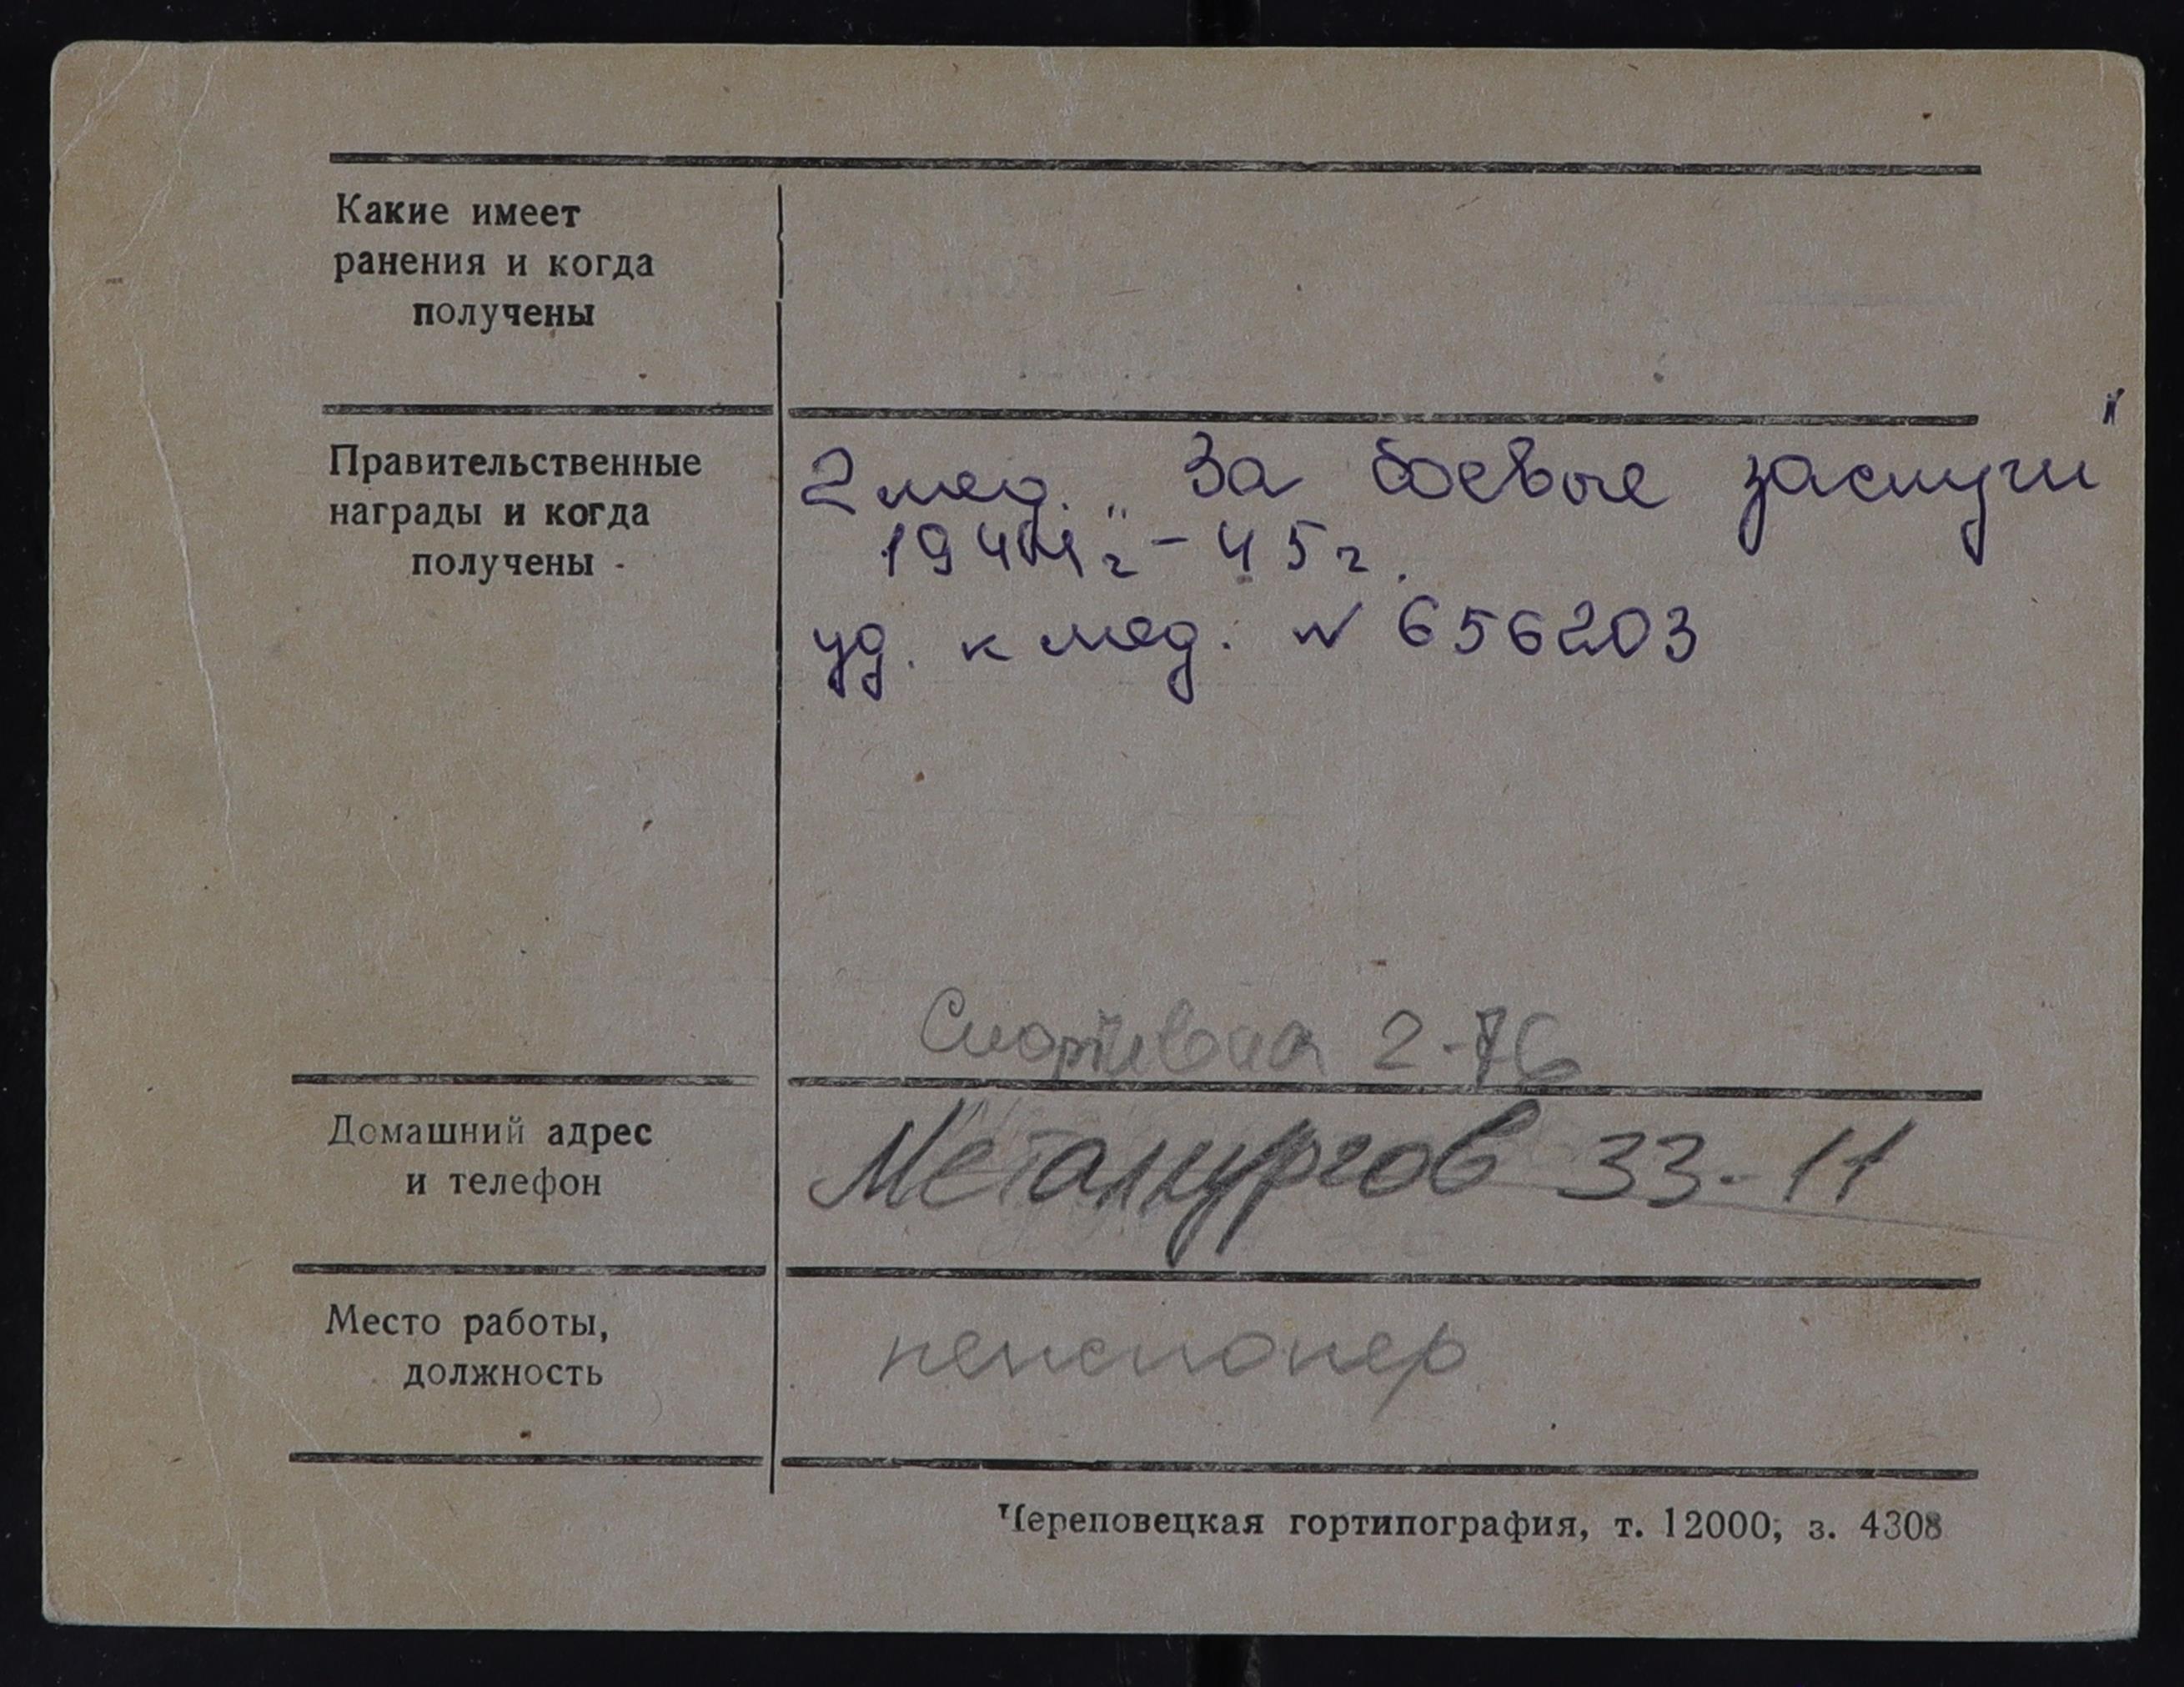 Какие имеет
ранения и когда
получены
Правительственные
награды и когда
получены -
2 мед. „За боевые заслуги"
1944г - 45г.
уд. к мед. N 656203
Спортивная 2-76
Домашний адрес
и телефон
Металургов 33-11
Место работы,
должность
пенсионер
Череповецкая гортипография, т. 12000; з. 4308